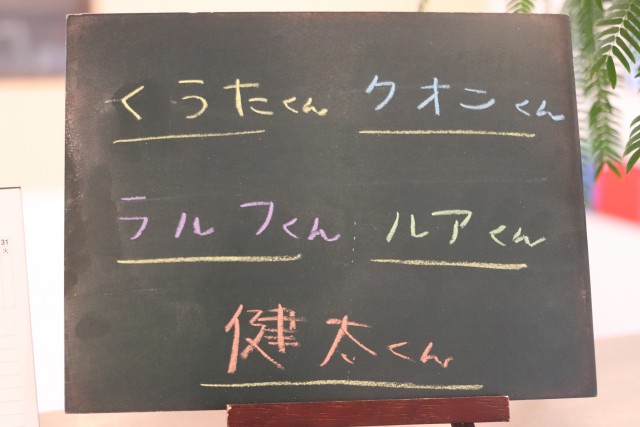 くうたくん クオンくん
ラルフくん ルアくん
健太くん
31
火